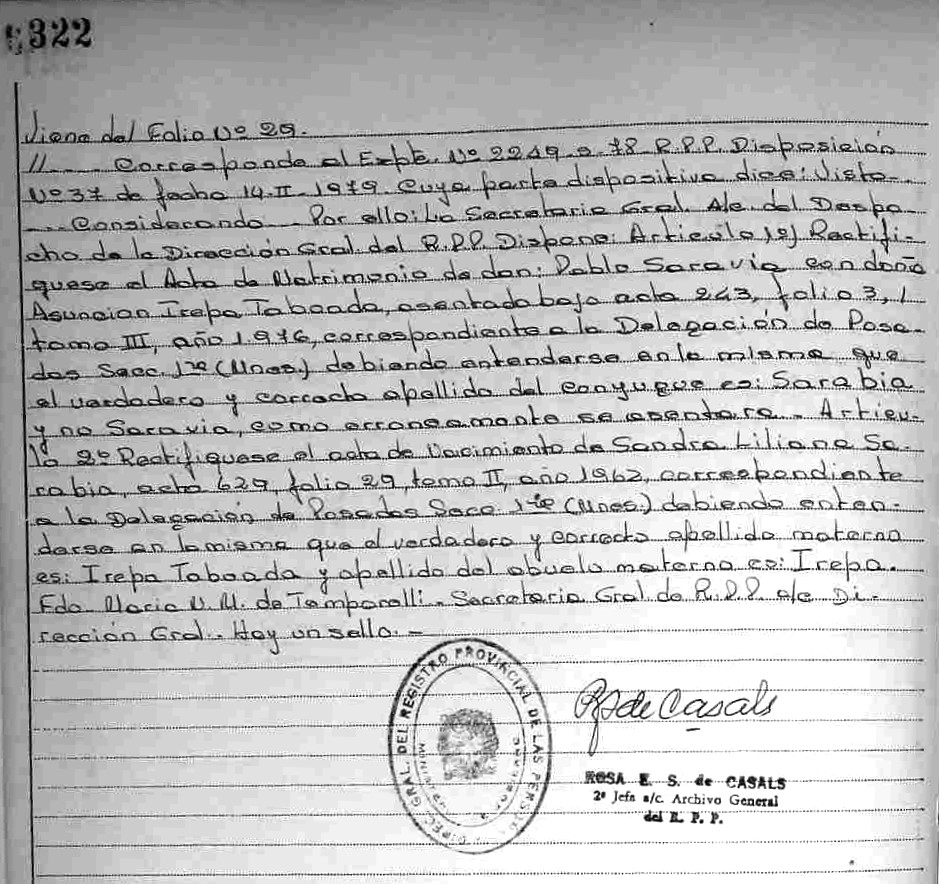 322
Viene del Folio Nº 29.
// Corresponde al Expte. Nº 2249 a 78 R.P.P. Disposición
Nº 37 de fecha 14. II. 1979. Cuya parte dispositiva dice: Visto
Considerando Por ello: La Secretaria Gral. A/c. del Despa
cho de la Dirección Gral. del R.P.P. Dispone: Articulo 1º) Rectifi-
quese el Acta de Matrimonio de don: Pablo Saravia con doña
Asuncion Irepa Taboada, asentado bajo acta 243, folio 3, 1
tomo III, año 1976, correspondiente a la Delegación de Posa-
das Secc. 1ra (Mnes.) debiendo entenderse en la misma que
el verdadero y correcto apellido del conyugue es: Sarabia
y no Saravia, como erroneamente se asentara. Articu-
lo 2º Rectifiquese el acta de Nacimiento de Sandra Liliana Sa-
rabia, acta 629, folio 29, tomo II, año 1962, correspondiente
a la Delegación de Posadas Secc. 1ra (Mnes.) debiendo enten-
derse en la misma que el verdadero y correcto apellido materno
es: Irepa Taboada y apellido del abuelo materno es: Irepa.
Fdo Maria N. M. de Tamparelli. Secretaria Gral de R.P.P. a/c Di-
rección Gral. Hay un sello. -
DIREC. GRAL. DEL REGISTRO PROVINCIAL DE LAS PERSONAS
de Casals
ROSA E. S. de CASALS
2ª Jefa a/c. Archivo General
del R. P. P.